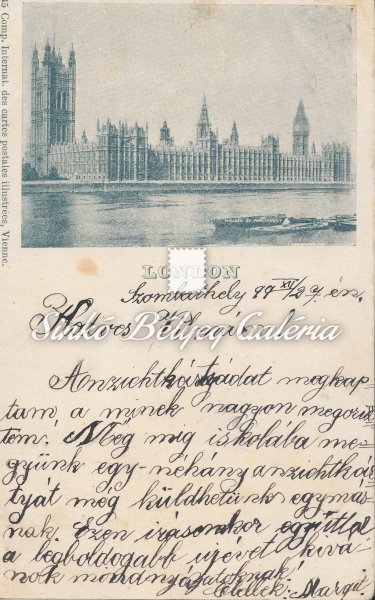 45 Comp. Internat. des cartes postales illustrées, Vienne.
LONDON
Szombathely 97 XII/27 én.
Sinkó Bélyeg Galéria
Anzichtkártyádat megkap-
tam, a minek nagyon megörül-
tem. Még mig iskolába me-
gyünk egy-néhány anzichtkár-
tyát még küldhetünk egymás-
nak. Ezen irásomkor egyúttal
a legboldogabb ujévet kivá-
nok
Margit.